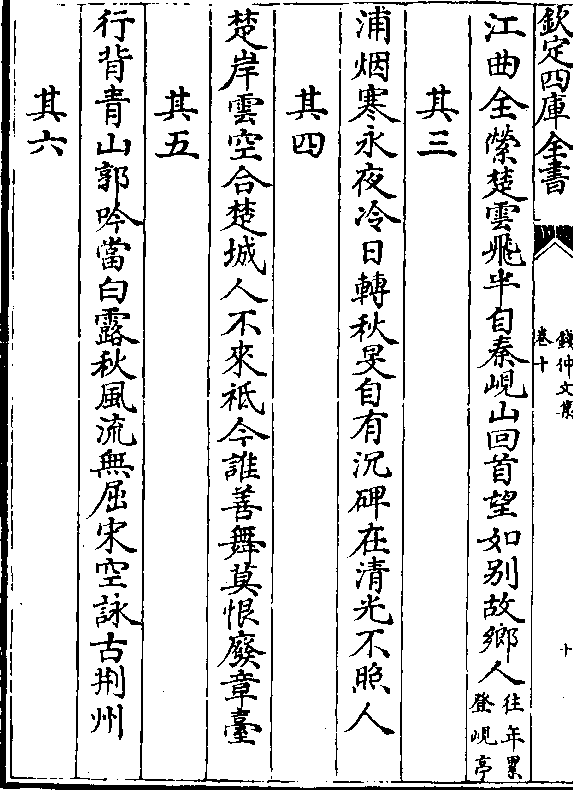 欽定四庫全書
錢仲文集
卷十
十
江曲全縈楚雲飛半自秦峴山回首望如别故鄉人往年累登峴亭
其三
浦烟寒永夜冷日轉秋旻自有沉碑在清光不照人
其四
楚岸雲空合楚城人不來祗今誰善舞莫恨廢章臺
其五
行背青山郭吟當白露秋風流無屈宋空詠古荆州
其六